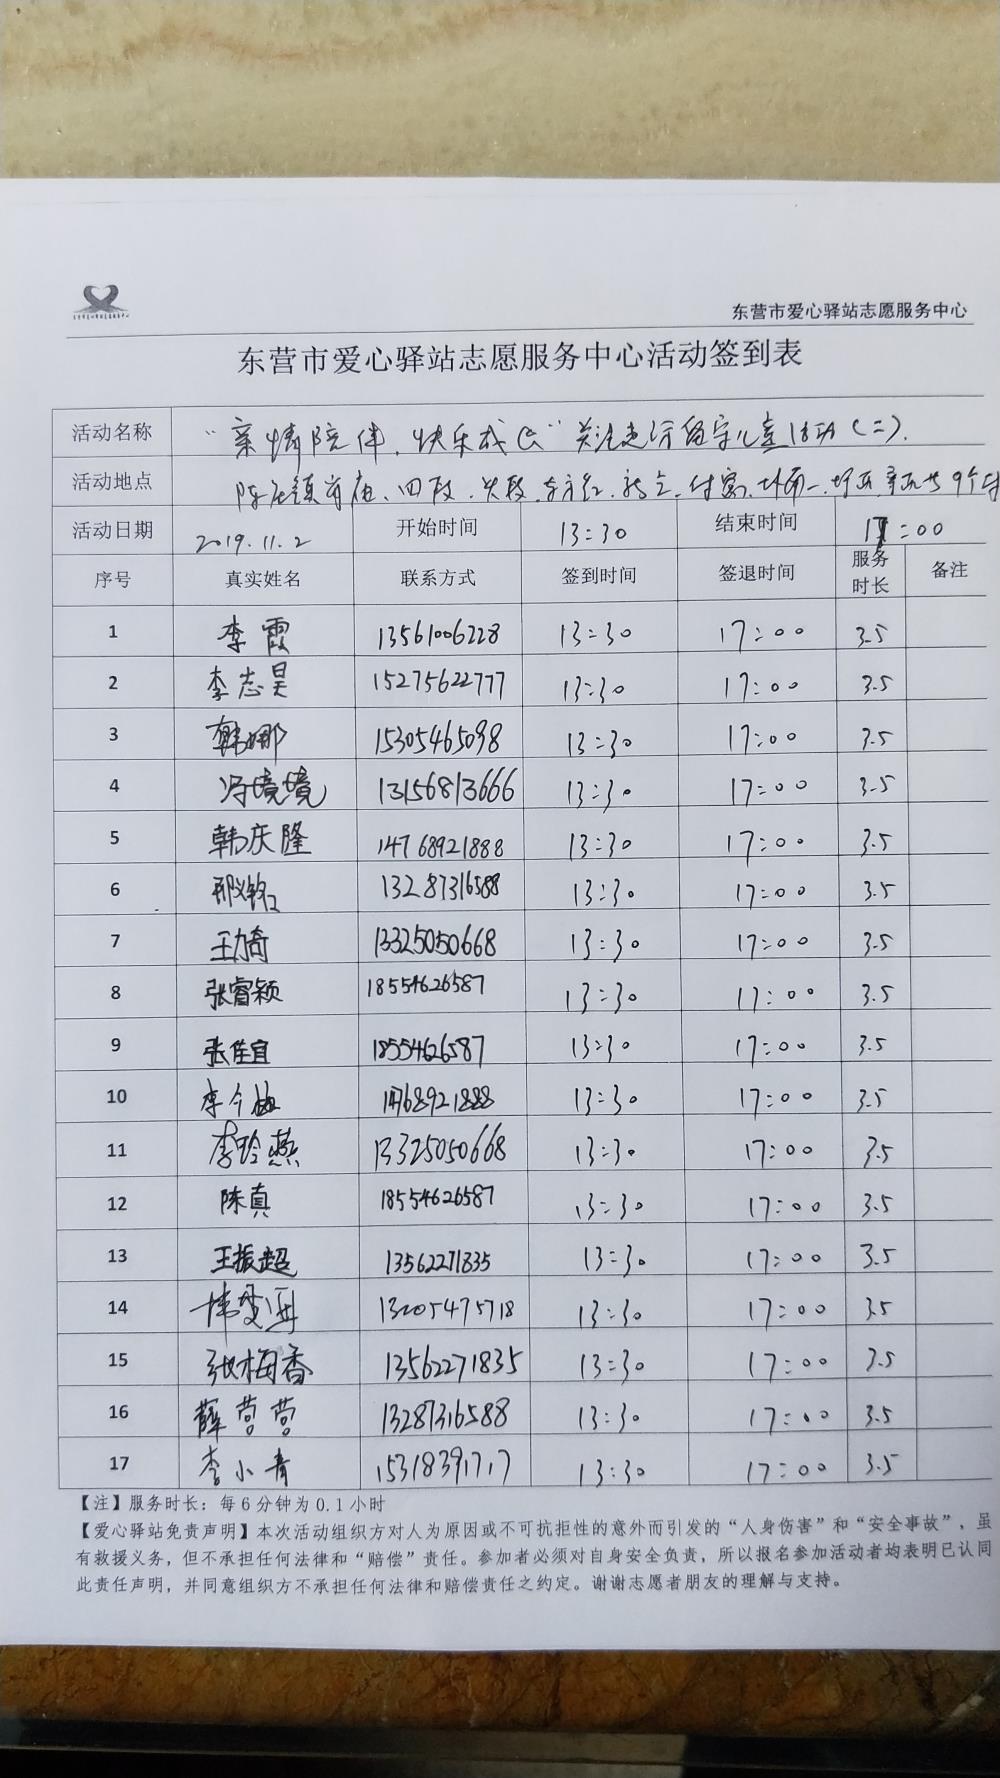 东营市爱心驿站志愿服务中心
东营市爱心驿站志愿服务中心活动签到表
活动名称 “亲情陪伴，快乐成长”关注走访留守儿童活动(二).
活动地点 陈庄镇 四段 9个村
活动日期 2019.11.2 开始时间 13:30 结束时间 17:00
序号 真实姓名 联系方式 签到时间 签退时间 服务时长 备注
1 李霞 13561006228 13:30 17:00 3.5
2 李志昊 15275622777 13:30 17:00 3.5
3 韩娜 15305465098 13:30 17:00 3.5
4 冯境境 13156813666 13:30 17:00 3.5
5 韩庆隆 14768921888 13:30 17:00 3.5
6 13287316588 13:30 17:00 3.5
7 王力奇 13325050668 13:30 17:00 3.5
8 张睿颖 18554626587 13:30 17:00 3.5
9 张佳宜 18554626587 13:30 17:00 3.5
10 李今越 14768921888 13:30 17:00 3.5
11 李玲燕 13325050668 13:30 17:00 3.5
12 陈真 18554626587 13:30 17:00 3.5
13 王振超 13562271835 13:30 17:00 3.5
14 13205475718 13:30 17:00 3.5
15 张梅香 13562271835 13:30 17:00 3.5
16 薛营营 13287316588 13:30 17:00 3.5
17 李小青 15318391717 13:30 17:00 3.5
【注】服务时长：每6分钟为0.1小时
【爱心驿站免责声明】本次活动组织方对人为原因或不可抗拒性的意外而引发的“人身伤害”和“安全事故”，虽
有救援义务，但不承担任何法律和“赔偿”责任。参加者必须对自身安全负责，所以报名参加活动者均表明已认同
此责任声明，并同意组织方不承担任何法律和赔偿责任之约定。谢谢志愿者朋友的理解与支持。